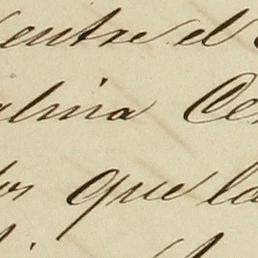 entre el
alma Ce
os que la